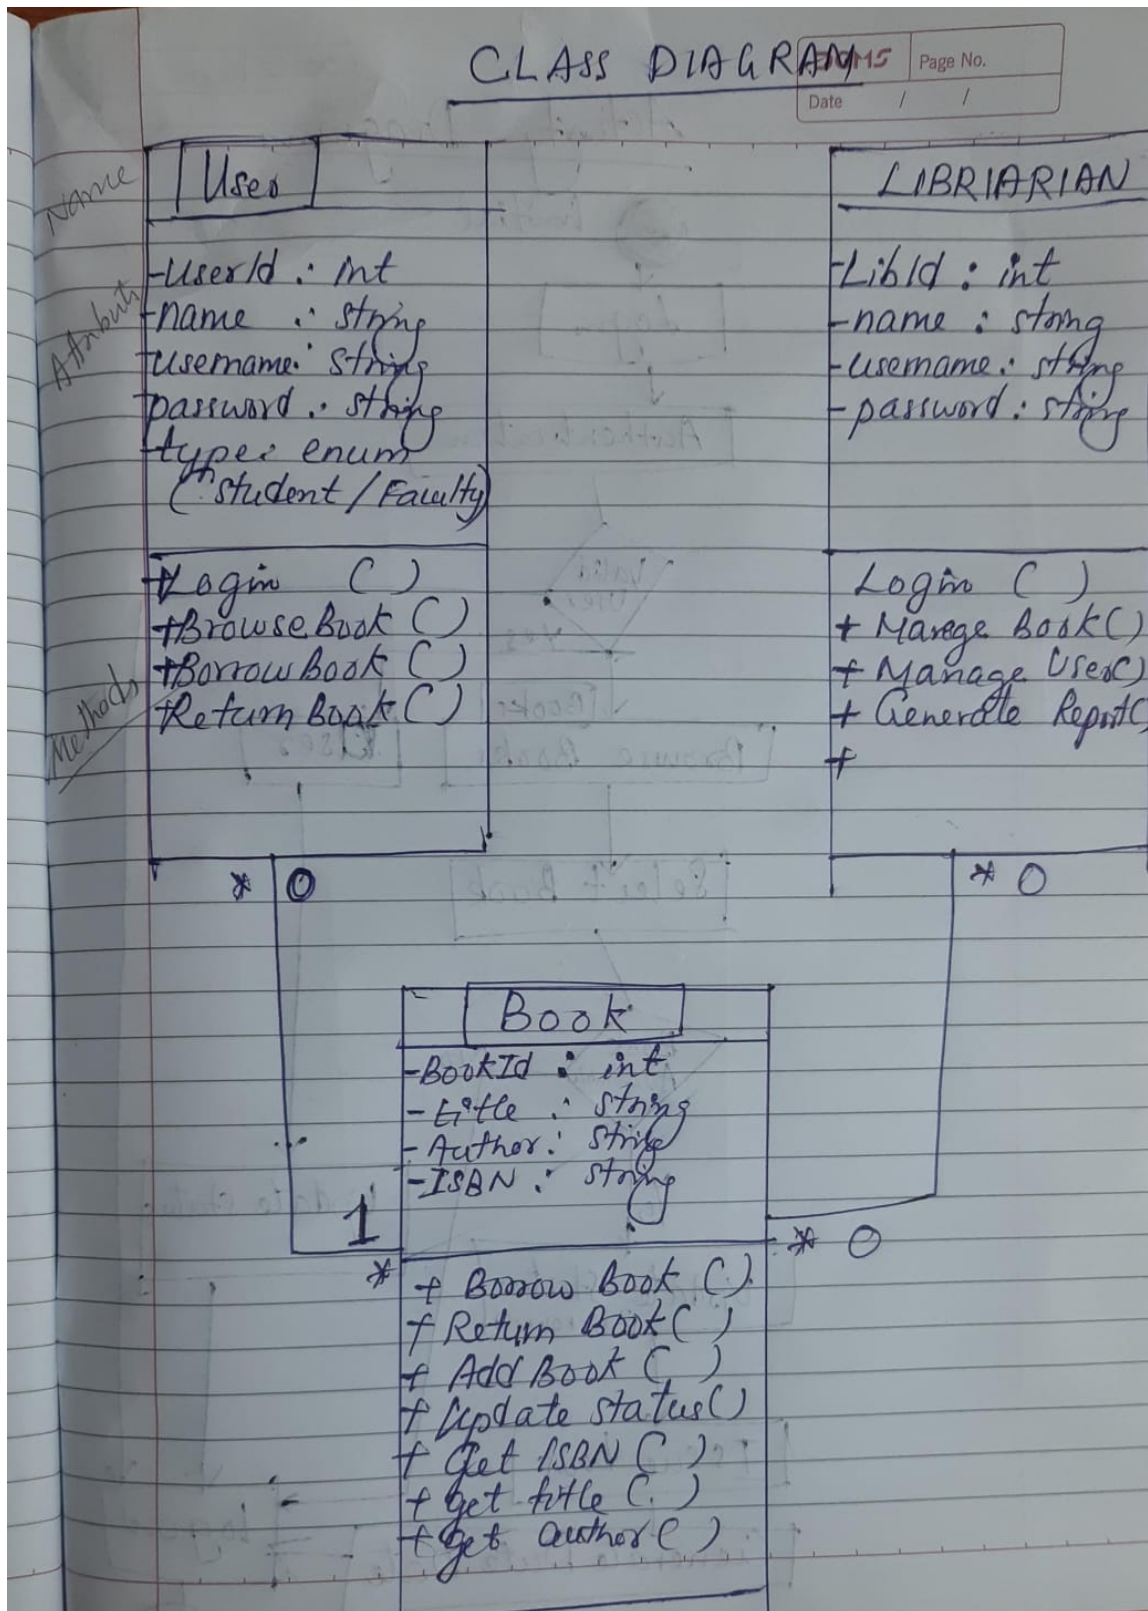 CLASS DIAGRAM
Page No.
Date / /
Name
User
Attributs
-UserId : int
-name : string
-username: string
-password : string
-type: enum
(student / Faculty)
Methods
+Login ( )
+BrowseBook ( )
+BorrowBook ( )
+Return Book ( )
* 0
LIBRIARIAN
-LibId : int
-name : string
-username : string
- password : string
Login ( )
+ Manege Book()
+ Manage User()
+ Generate Report(
+
* 0
Book
-BookId : int
- title : string
- Author : string
-ISBN : string
1
*
* 0
+ Borrow Book ( )
+ Return Book ( )
+ Add Book ( )
+ Update status()
+ Get ISBN ( )
+ get title ( )
+ get author ( )